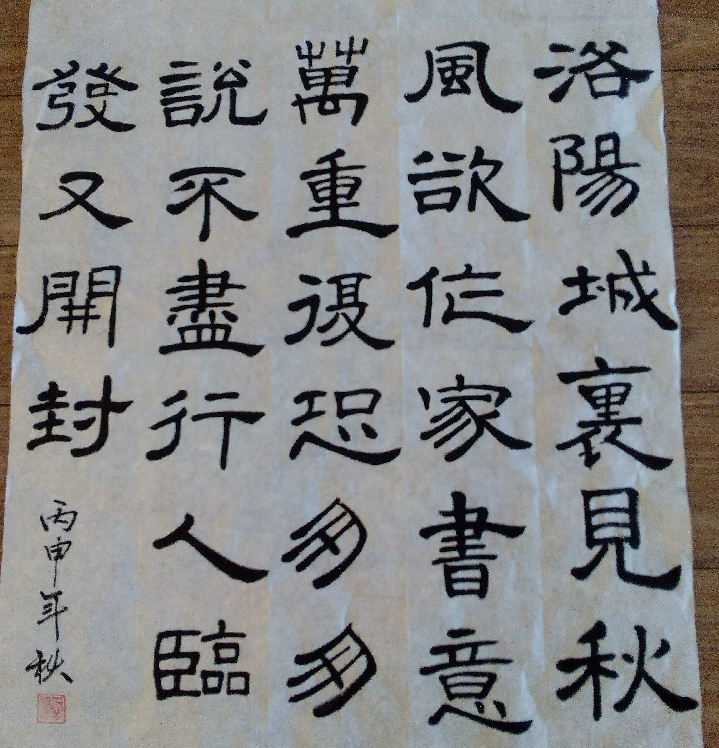 洛陽城裏見秋
風欲作家書意
萬重復恐匆匆
說不盡行人臨
發又開封
丙申年秋